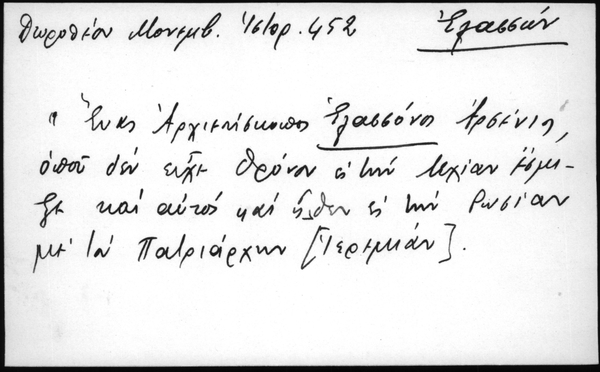 Δωροθέου Μονεμβ. Ἱστορ. 452 Ἐλασσών
"Ἕνας Ἀρχιεπίσκοπος Ἐλασσόνος Ἀρσένιος,
ὁποῦ δὲν εἶχε θρόνον εἰς τὴν
καὶ αὐτὸς καὶ ἦλθεν εἰς τὴν Ρωσίαν
μὲ τὸν Πατριάρχην [Ἱερεμίαν].